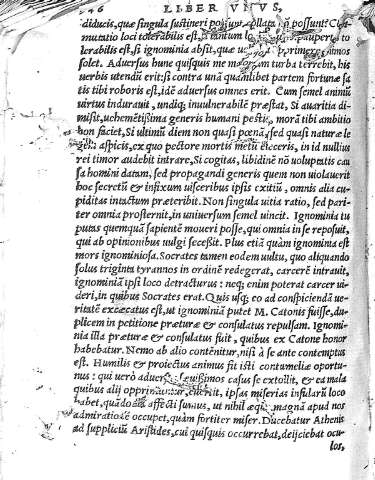 46 LIBER VNVS,
diducis, quæ singula sustineri possunt, collata nõ possunt? 
mutatio loci tolerabilis est, si tantum lo paupert
lerabilis est, si ignominia absit, quæ u primere nimos
solet. Aduersus hunc quisquis me ma turba terrebit, his
uerbis utendũ erit: si contra unã quamlibet partem fortunæ sa
tis tibi roboris est, idẽ aduersus omnes erit. Cum semel animũ
uirtus indurauit, undiq; inuulnerabilẽ præstat. Si auaritia di-
misit, uehemẽtißima generis humani pestis, morã tibi ambitio
non faciet. Si ultimũ diem non quasi pœnã, sed quasi naturæ le
gem aspicis, ex quo pectore mortis metũ eieceris, in id nullius
rei timor audebit intrare. Si cogitas, libidinẽ nõ uoluptatis cau
sa homini datam, sed propagandi generis quem non uiolauerit
hoc secretũ & infixum uisceribus ipsis exitiũ, omnis alia cu-
piditas intactum præteribit. Non singula uitia ratio, sed pari-
ter omnia prosternit, in uniuersum semel uincit. Ignominia tu
putas quemquã sapientẽ moueri posse, qui omnia in se reposuit,
qui ab opinionibus uulgi seceßit. Plus etiã quàm ignominia est
mors ignominiosa. Socrates tamen eodem uultu, quo aliquando
solus triginta tyrannos in ordinẽ redegerat, carcerẽ intrauit,
ignominiã ipsi loco detracturus: neq; enim poterat carcer ui-
deri, in quibus Socrates erat. Quis usq; eo ad conspiciendã ue-
ritatẽ excæcatus est, ut ignominiã putet M. Catonis fuisse, du-
plicem in petitione præturæ & consulatus repulsam. Ignomi-
nia illa præturæ & consulatus fuit, quibus ex Catone honor
habebatur. Nemo ab alio contẽnitur, nisi à se ante contemptus
est. Humilis & proiectus animus fit isti contumeliæ oportu-
nus: qui uerò aduers sæuißimos casus se extollit, & ea mala
quibus alij opprimuntur, euertit, ipsas miserias infularũ loco
habet, quãdo ita affecti sumus, ut nihil æq; magnã apud nos
admirationẽ occupet, quàm fortiter miser. Ducebatur Athenis
ad suppliciũ Aristides, cui quisquis occurrebat, deijciebat ocu-
los,